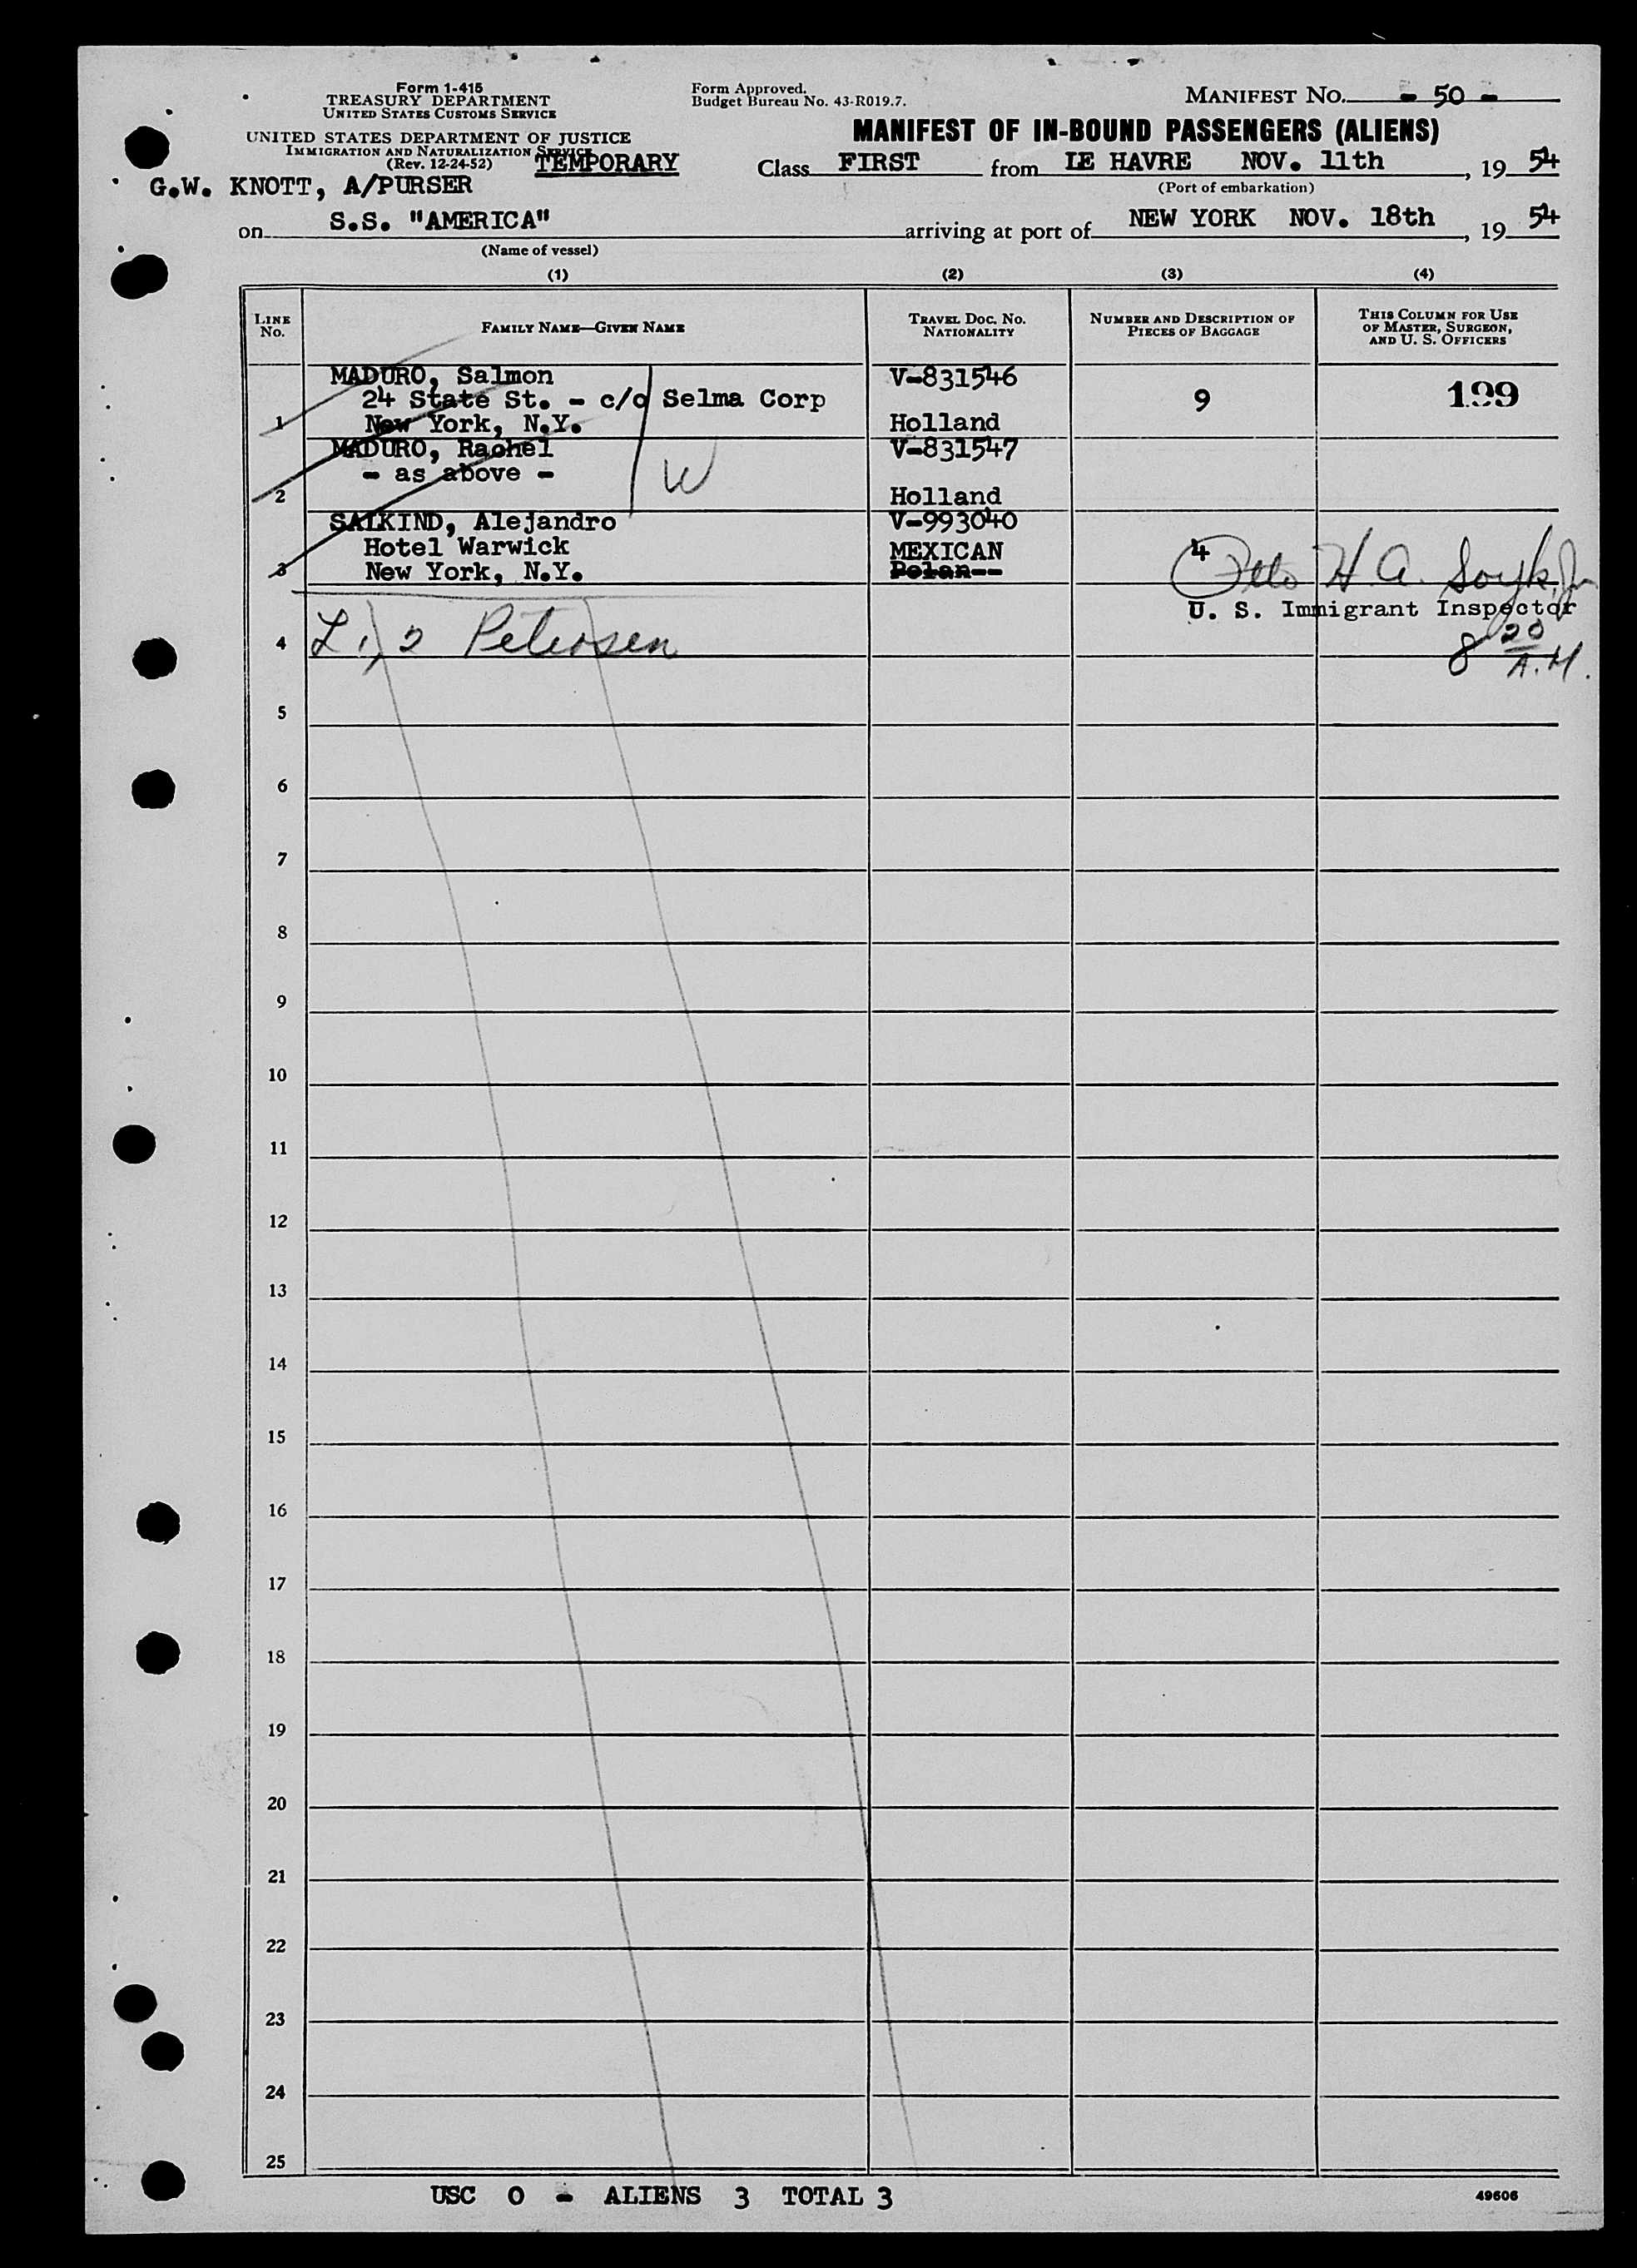 Form 1-415
TREASURY DEPARTMENT
UNITED STATES CUSTOMS SERVICE
UNITED STATES DEPARTMENT OF JUSTICE
IMMIGRATION AND NATURALIZATION SERVICE
(Rev. 12-24-52)
TEMPORARY
G.W. KNOTT, A/PURSER
Form Approved.
Budget Bureau No. 43-R019.7.
MANIFEST No. - 50 -
MANIFEST OF IN-BOUND PASSENGERS (ALIENS)
Class FIRST from LE HAVRE NOV. 11th, 19 54
(Port of embarkation)
on S.S. "AMERICA" arriving at port of NEW YORK NOV. 18th, 19 54
(Name of vessel)
(1) (2) (3) (4)
LINE No.
FAMILY NAME—GIVEN NAME
TRAVEL DOC. NO. NATIONALITY
NUMBER AND DESCRIPTION OF PIECES OF BAGGAGE
THIS COLUMN FOR USE OF MASTER, SURGEON, AND U. S. OFFICERS
MADURO, Salmon V-831546
24 State St. - c/o Selma Corp 9 199
1 New York, N.Y. Holland
MADURO, Rachel V-831547
- as above - W
2 Holland
SALKIND, Alejandro V-993040
Hotel Warwick MEXICAN 4
3 New York, N.Y. Polan--
Otto H. A. Soyk, Jr
U. S. Immigrant Inspector
8 20 A.M.
4 L 1, 2 Petersen
5
6
7
8
9
10
11
12
13
14
15
16
17
18
19
20
21
22
23
24
25
USC 0 - ALIENS 3 TOTAL 3
49606